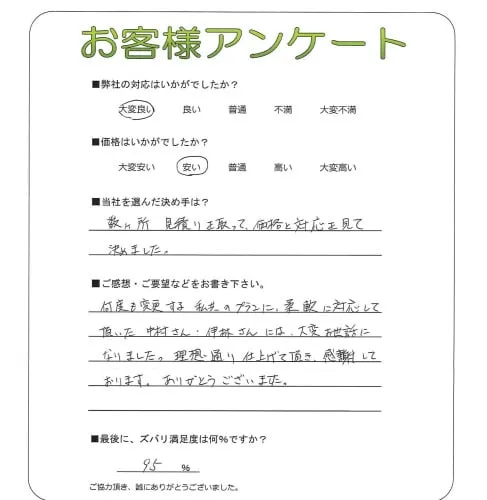 お客様アンケート
■弊社の対応はいかがでしたか?
大変良い 良い 普通 不満 大変不満
■価格はいかがでしたか?
大変安い 安い 普通 高い 大変高い
■当社を選んだ決め手は?
数ヶ所 見積りを取って、価格と対応を見て
決めました。
■ご感想・ご要望などをお書き下さい。
何度も変更する 私共のプランに、柔軟に対応して
頂いた 中村さん・伊林さんには、大変お世話に
なりました。理想通り 仕上げて頂き、感謝して
おります。ありがとうございました。
■最後に、ズバリ満足度は何%ですか?
95 %
ご協力頂き、誠にありがとうございました。